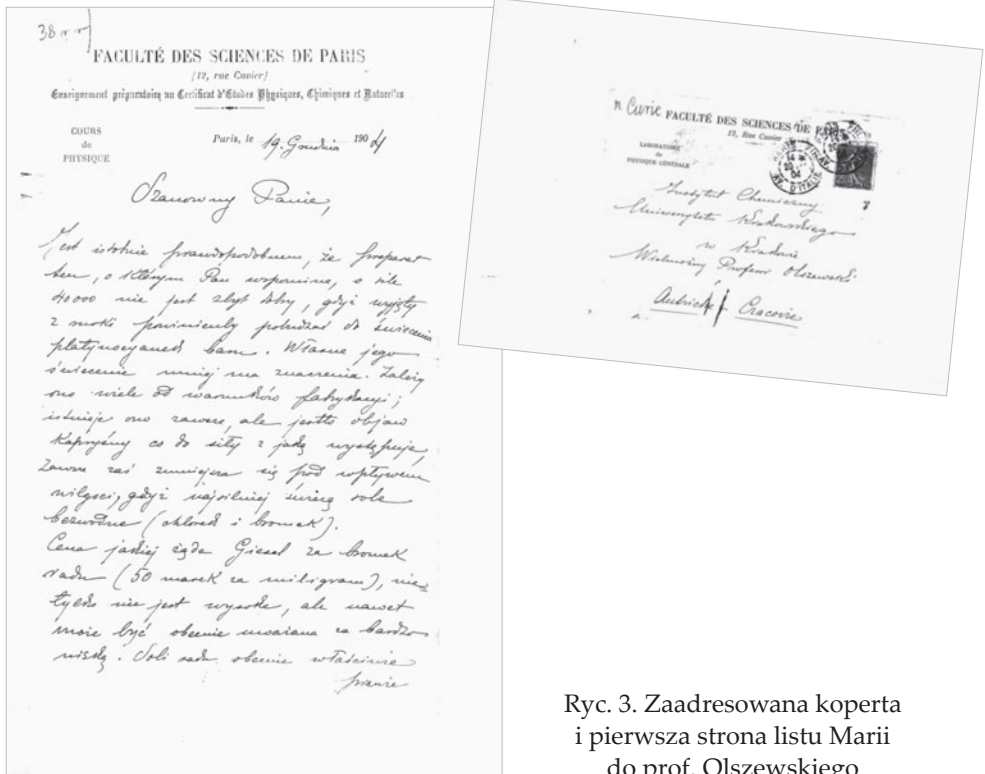 38
FACULTÉ DES SCIENCES DE PARIS
(12, rue Cuvier)
Enseignement préparatoire au Certificat d'Études Physiques, Chimiques et Naturelles
COURS
de
PHYSIQUE
Paris, le 19. Grudnia 1904
Szanowny Panie,
Jest istotnie prawdopodobnem, że preparat
ten, o którym Pan wspomina, o sile
40000 nie jest zbyt dobry, gdyż wyjęty
z powinienby pobudzać do świecenia
platynocyanek baru. Własne jego
świecenie mniej ma znaczenia. Zależy
ono wiele od warunków fabrykacyi;
istnieje ono zawsze, ale jestto objaw
kapryśny co do siły z jaką występuje,
Zawsze zaś zmniejsza się pod wpływem
wilgoci, gdyż najsilniej świecą sole
bezwodne (chlorek i bromek).
Cena jakiej żąda Giesel za bromek
radu (50 marek za miligram), nie
tylko nie jest wysoka, ale nawet
może być obecnie uważana za bardzo
niską. Soli radu obecnie właściwie
prawie
Curie FACULTÉ DES SCIENCES DE PARIS
12, Rue Cuvier
LABORATOIRE
de
PHYSIQUE GÉNÉRALE
Instytut Chemiczny
Uniwersytetu Krakowskiego
w Krakowie
Wielmożny Profesor Olszewski
Autriche Cracovie
AV. D'ITALIE
Ryc. 3. Zaadresowana koperta
i pierwsza strona listu Marii
do prof. Olszewskiego